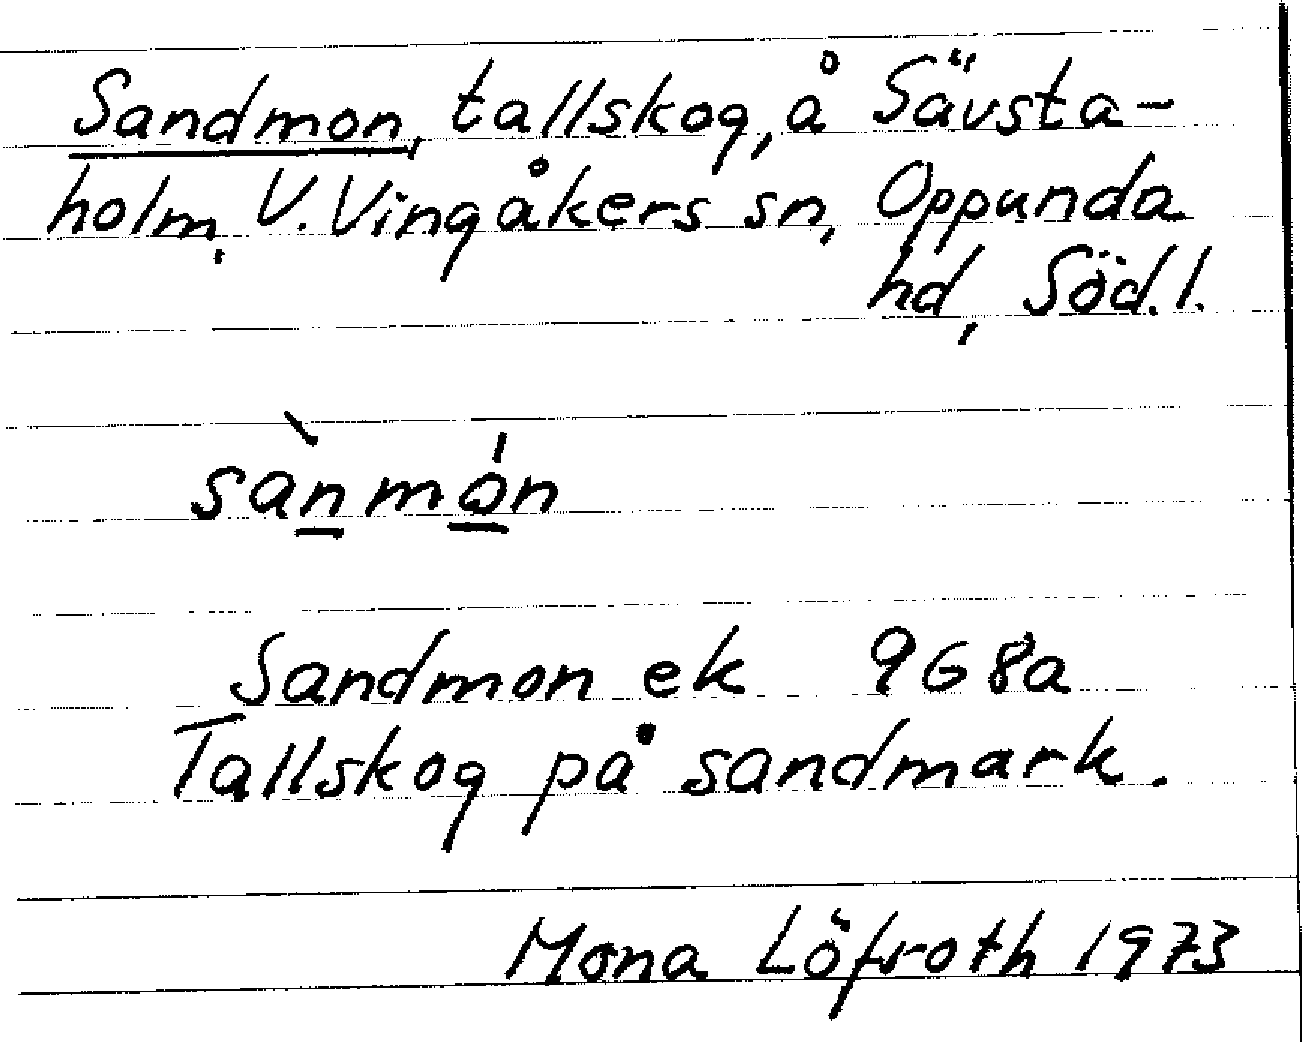 Sandmon, tallskog, å Sävsta-
holm, V. Vingåkers sn, Oppunda
hd, Söd.l.
sàn̲mó̲n
Sandmon ek 9G8a
Tallskog på sandmark.
Mona Löfroth 1973